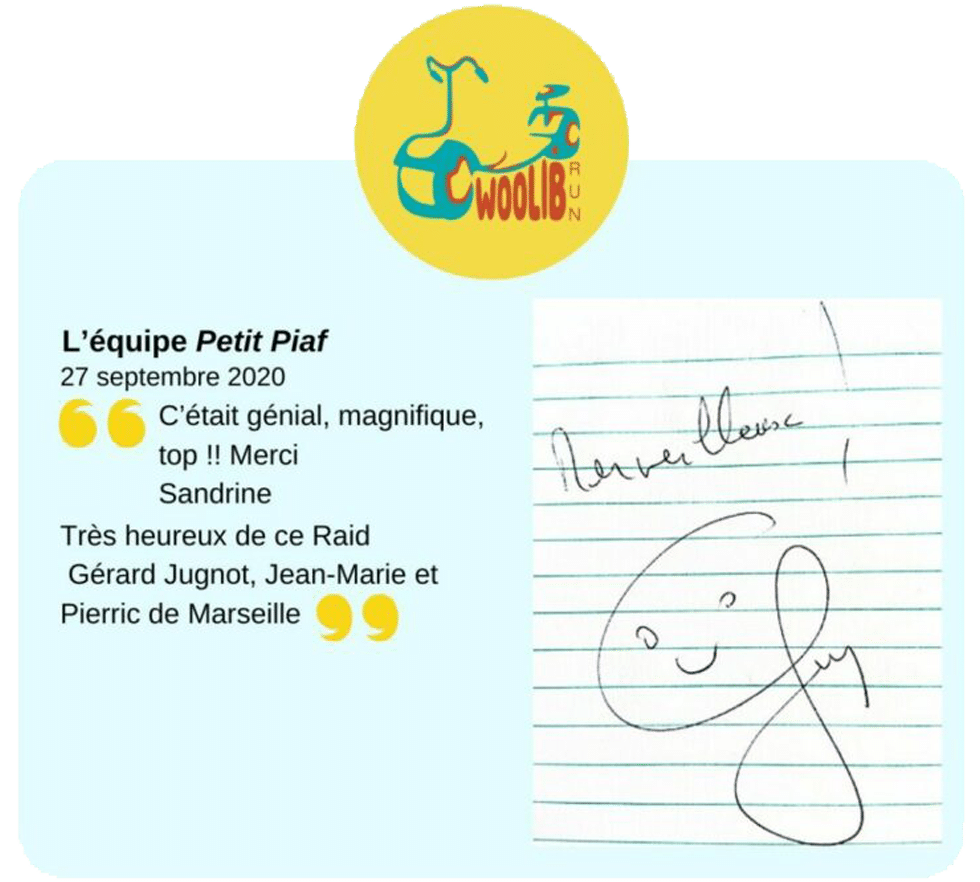 WOOLIB
RUN
L’équipe Petit Piaf
27 septembre 2020
C’était génial, magnifique,
top !! Merci
Sandrine
Très heureux de ce Raid
Gérard Jugnot, Jean-Marie et
Pierric de Marseille
Merveilleuse
!
Guy